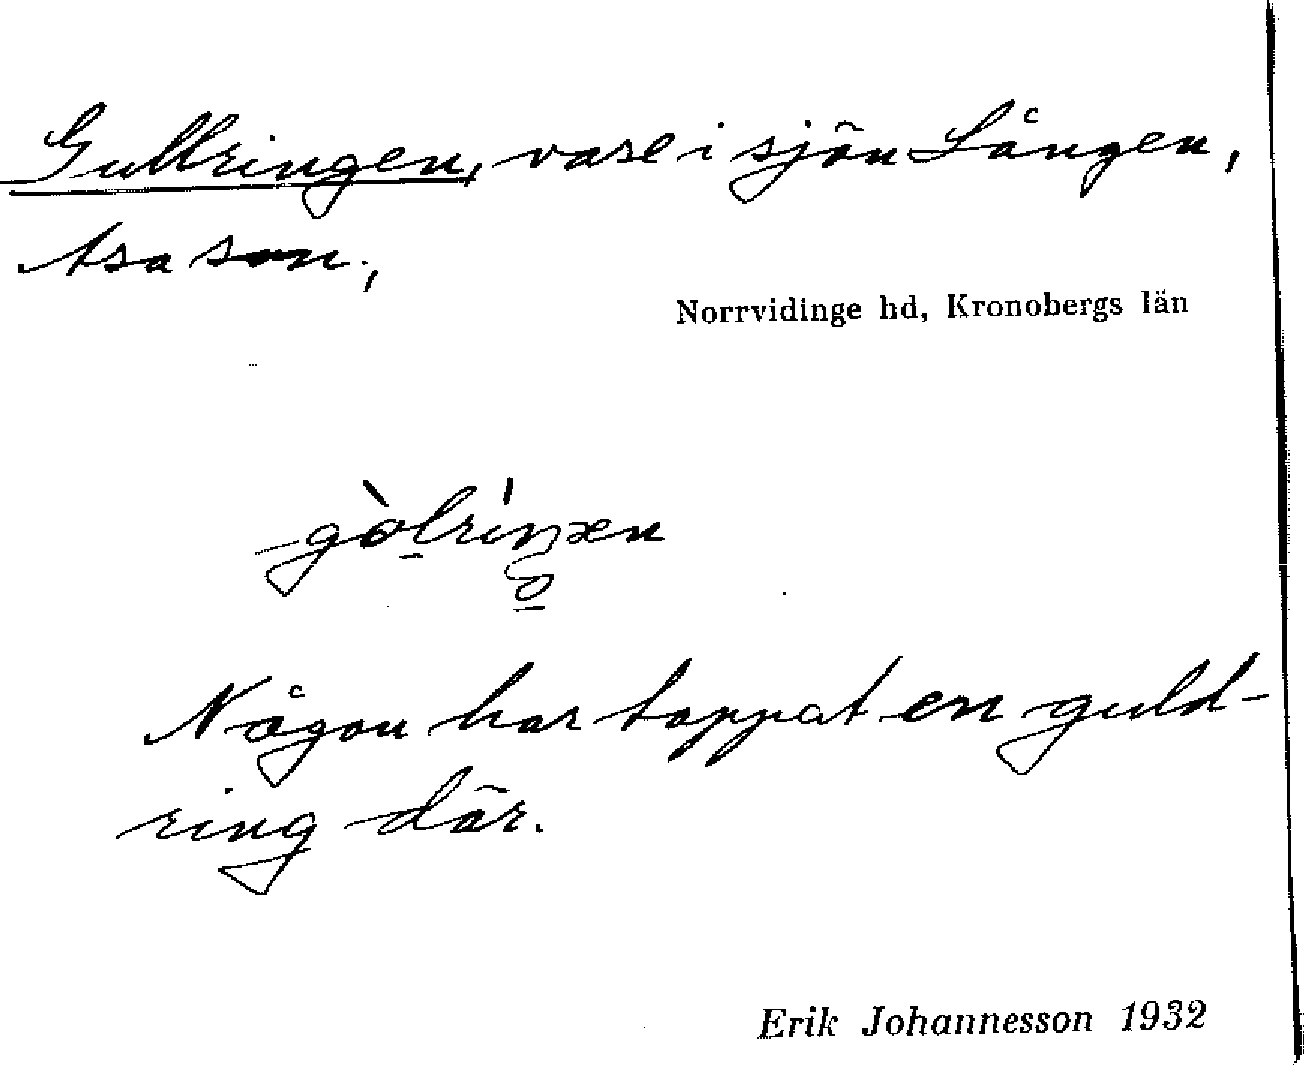 Gullringen, vase i sjön Lången,
Asa sn.,
Norrvidinge hd, Kronobergs län
gòlríŋən
Någon har tappat en guld-
ring där.
Erik Johannesson 1932